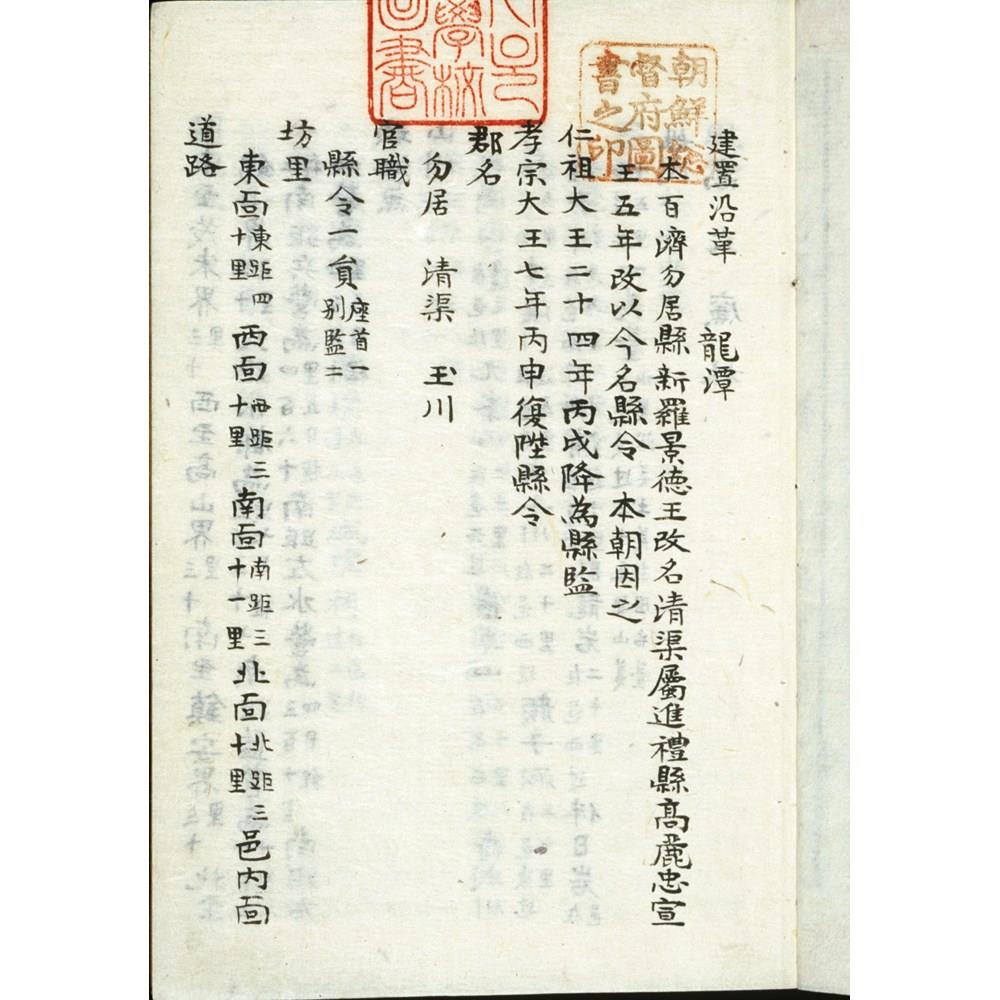 朝鮮總
督府圖
書之印
學校
圖書
建置沿革 龍潭
本百濟勿居縣新羅景德王改名清渠屬進禮縣高麗忠宣
王五年改以今名縣令 本朝因之
仁祖大王二十四年丙戌降為縣監
孝宗大王七年丙申復陞縣令
郡名
勿居 清渠 玉川
官職
縣令一員 座首一 别監二
坊里
東面 東距四十里 西面 西距三十里 南面 南距三十一里 北面 北距三十里 邑內面
道路